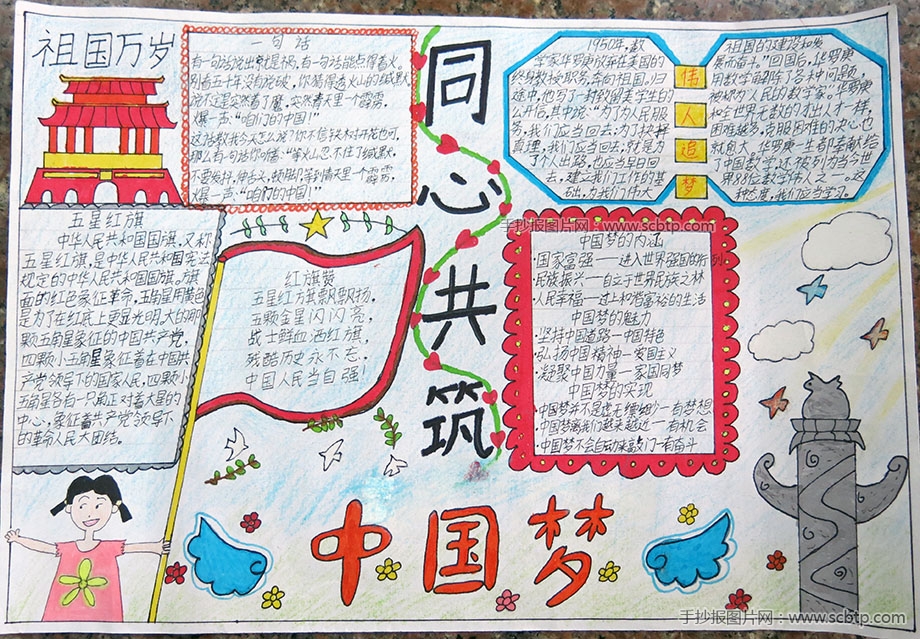 祖国万岁
一句话
有一句话说出就是祸，有一句话能点得着火，
别看五十年没有说破，你猜得透火山的缄默
突然青天里一个霹雳，
爆一声："咱们的中国！"
这话教我今天怎么说？你不信铁树开花也可，
那么有一句话你听着："等火山忍不住了缄默，
不要发抖，伸舌头，顿脚，等到青天里一个霹雳，
爆一声："咱们的中国！"
同
心
共
筑
1950年，数
学家华罗庚放弃在美国的
终身教授职务，奔向祖国。归
途中，他写了一封致留美学生的
公开信，其中说："为了为人民服
务，我们应当回去；为了抉择
真理，我们应当回去；就是为
了个人出路，也应当早日回
去，建立我们工作的基
础，为我们伟大
伟
人
追
梦
祖国的建设和发
展而奋斗。"回国后，华罗庚
用数学
被称为人民的数学家。华罗庚
和全世界无数的才出人才一样，
困难越多，克服困难的决心也
就愈大，华罗庚一生都奉献给
了中国数学，还被列为当今世
界88位数学伟人之一。这
种态度，我们应当学习。
五星红旗
中华人民共和国国旗，又称
五星红旗，是中华人民共和国宪法
规定的中华人民共和国国旗。旗
面的红色象征革命，五角星用黄色
是为了在红底上更显光明，大的那
颗五角星象征的中国共产党，
四颗小五角星象征着在中国共
产党领导下的国家人民，四颗小
五角星各有一只角正对着大星的
中心，象征着共产党领导下
的革命人民大团结。
红旗赞
五星红方旗飘飘扬，
五颗金星闪闪亮，
战士鲜血洒红旗，
残酷历史永不忘，
中国人民当自强！
手抄报图片网：www.scbtp.com
中国梦的内涵
·国家富强——进入世界强国的行列
·民族振兴——自立于世界民族之林
·人民幸福——过上和谐富裕的生活
中国梦的魅力
·坚持中国道路—中国特色
·弘扬中国精神—爱国主义
·凝聚中国力量—家国同梦
中国梦的实现
·中国梦并不是虚无缥缈—有梦想
·中国梦离我们越来越近—有机会
·中国梦不会自动来敲门—有奋斗
中国梦
手抄报图片网：www.scbtp.com